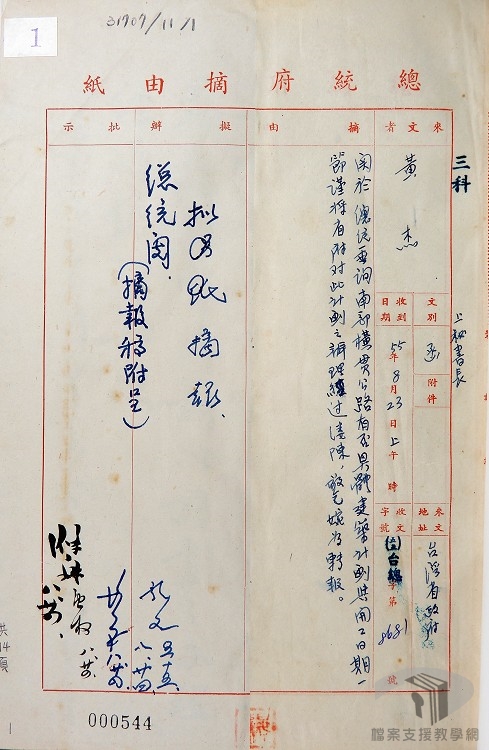 31707/11/1
1
總統府摘由紙
三科
上秘書長
來文者
黃杰
文別
函
附件
收到日期
55年8月23日上午 時
來文地址
台灣省政府
收文字號
台總字第8681號
摘由
關於 總統垂詢南部橫貫公路有否具體建築計劃與開工日期一
節謹將省府對此計劃之辦理經過陳,敬乞 轉報。
擬辦
擬 摘報
總統閱.
(摘報稿附呈)
八廿四
批示
共14頁
1
000544
檔案支援教學網